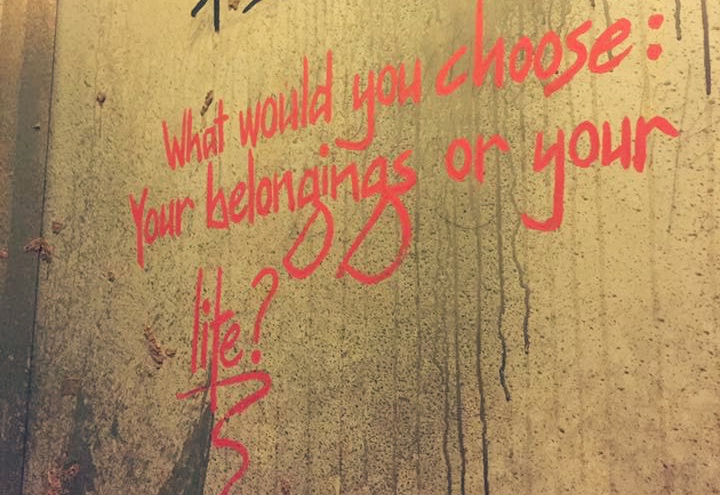 What would you choose:
Your belongings or your
life?